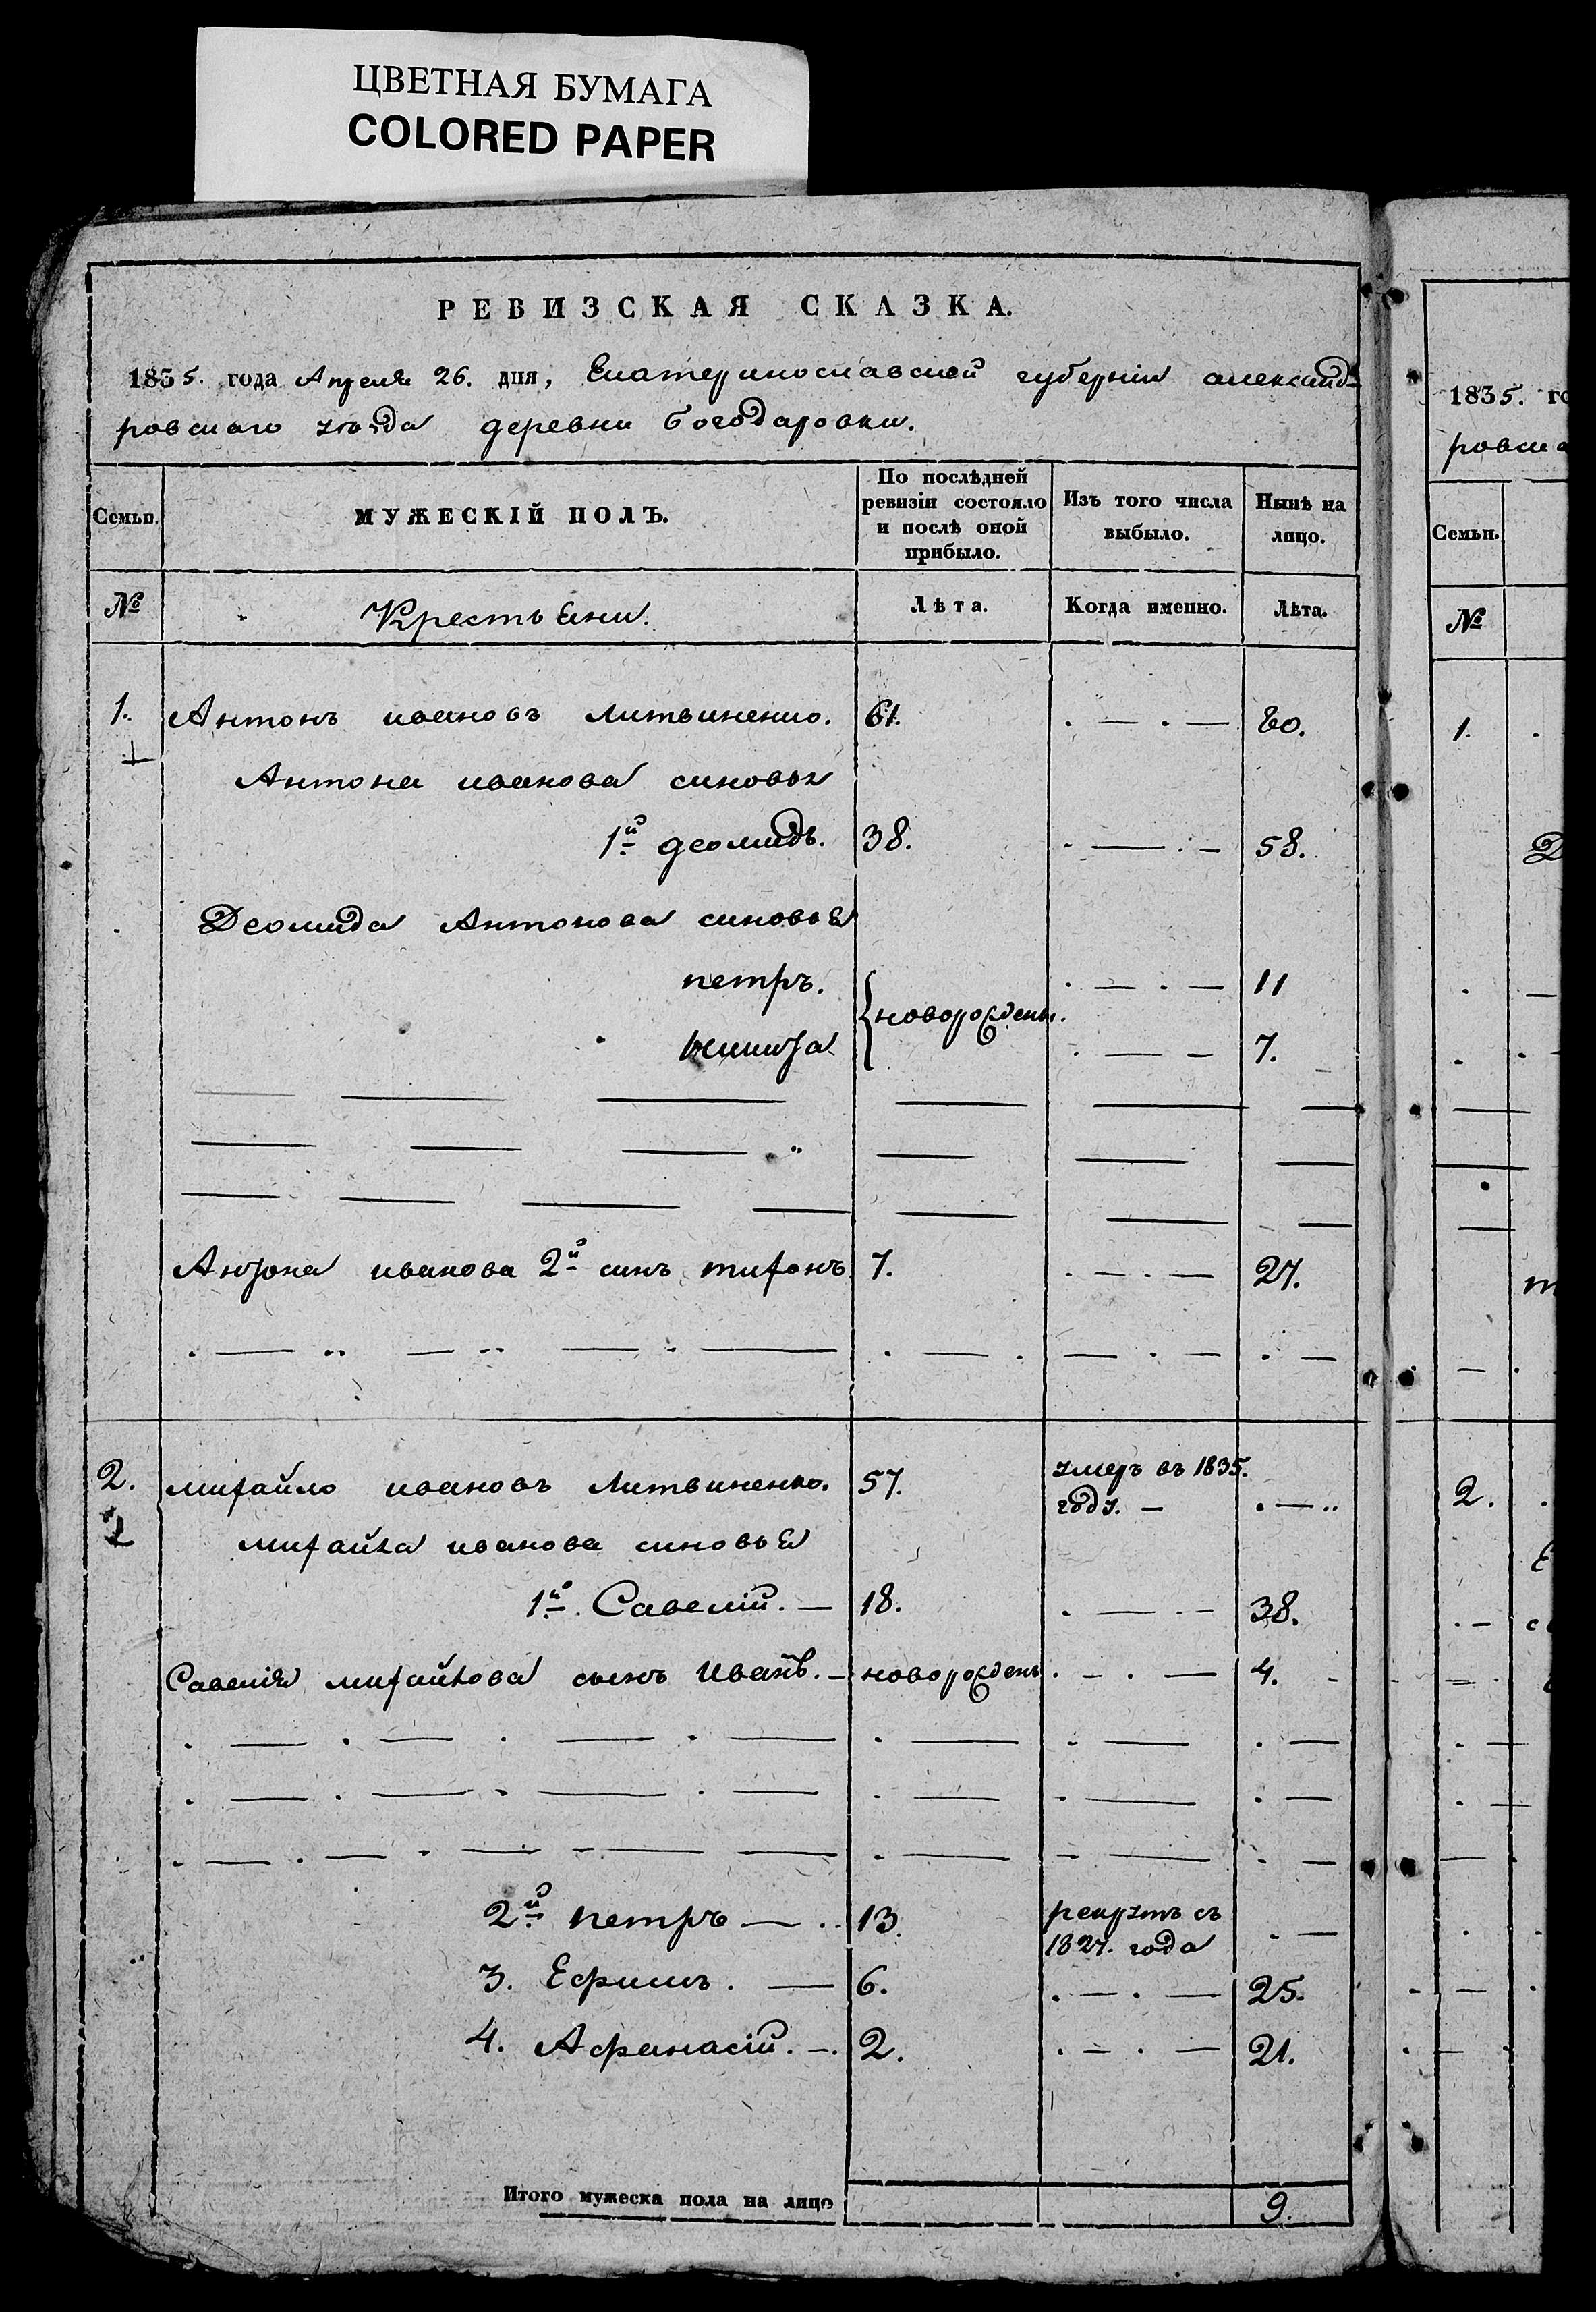 ЦВЕТНАЯ БУМАГА
COLORED PAPER
РЕВИЗСКАЯ СКАЗКА.
1835. года Апреля 26. дня, Екатеринославской губернiи александ-
ровскаго уѣзда деревни Богодаровки.
Семьи. МУЖЕСКІЙ ПОЛЪ. По послѣдней ревизіи состояло и послѣ оной прибыло. Изъ того числа выбыло. Нынѣ на лицо.
№ Крестьяни. Лѣта. Когда именно. Лѣта.
1. Антонъ ивановъ литвиненко. 61. 80.
Антона иванова синовья
1й деомидъ. 38. 58.
Деомида Антонова синовья
петръ. 11
новорожденн.
7.
Антона иванова 2й синъ тихонъ 7. 27.
2. михайло ивановъ литвиненко. 57. умеръ въ 1835. году.
михайла иванова синовья
1й. Савелій. 18. 38.
Савелія михайлова сынъ иванъ. новорожденъ 4.
2й петръ 13. рекрутъ съ 1827. года
3. Ефимъ. 6. 25.
4. Афанасій. 2. 21.
Итого мужеска пола на лицо 9.
1835. го
ровска
Семьи.
№
1.
2.